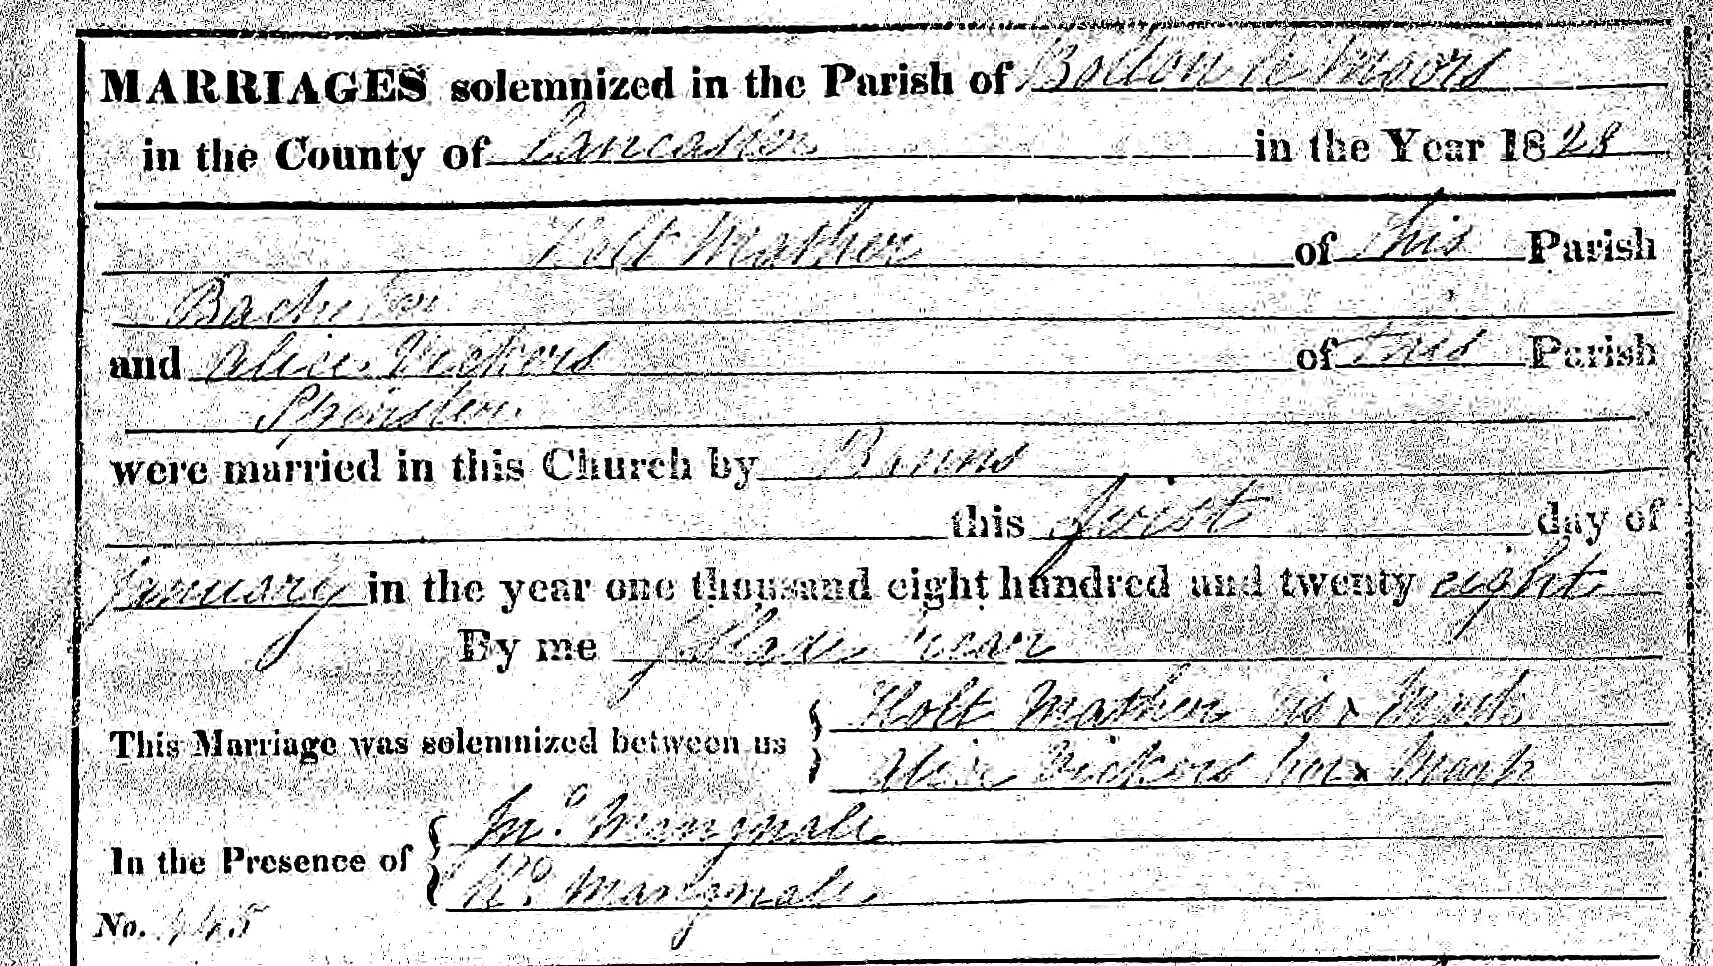 MARRIAGES solemnized in the Parish of Bolton le Moors
in the County of Lancaster in the Year 1828
Holt Mather of this Parish
Bachelor
and Alice Vickers of this Parish
Spinster
were married in this Church by Banns
this first day of
January in the year one thousand eight hundred and twenty eight
By me J Slade Vicar
This Marriage was solemnized between us { Holt Mather his x Mark
Alice Vickers her x Mark
In the Presence of { Jno. Mangnall
Ro. Mangnall
No. 445